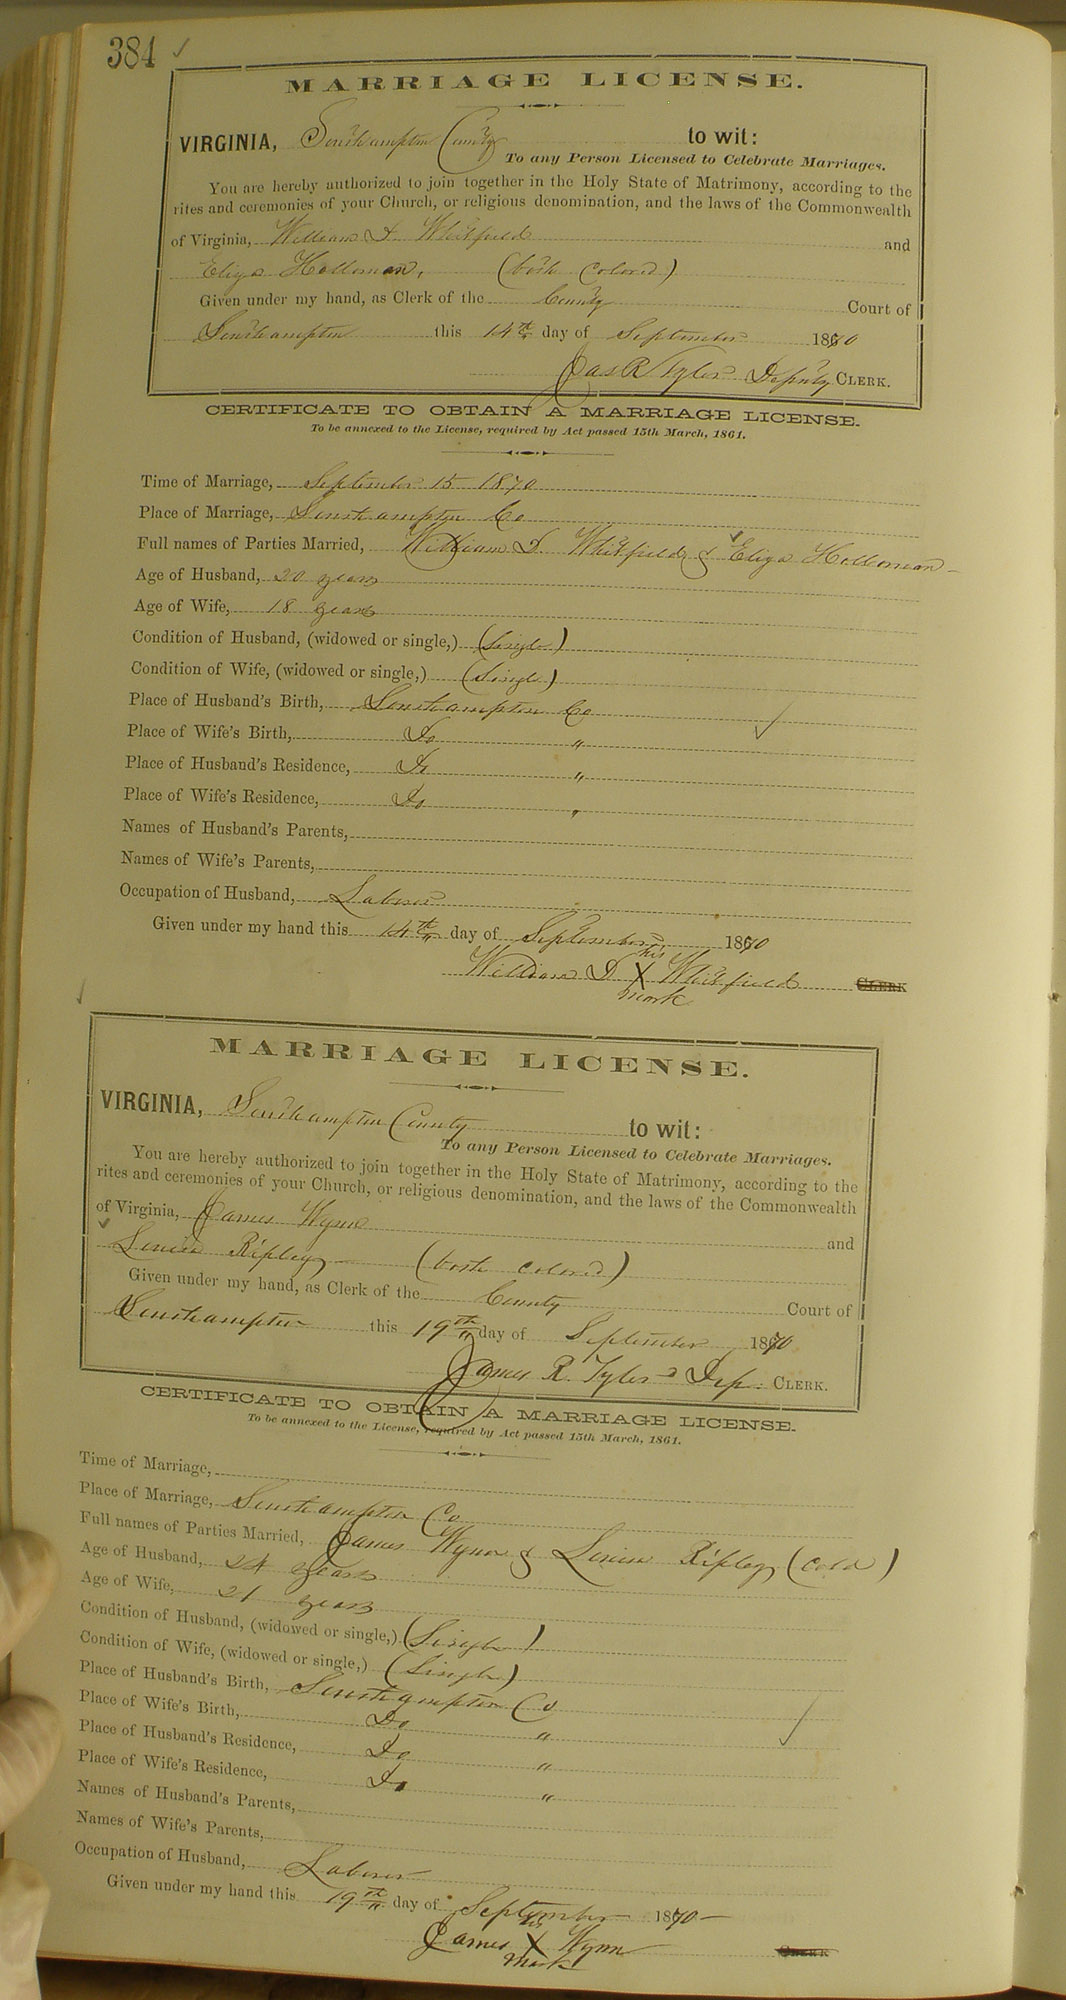 384 ✓
MARRIAGE LICENSE.
VIRGINIA, Southampton County to wit:
To any Person Licensed to Celebrate Marriages.
You are hereby authorized to join together in the Holy State of Matrimony, according to the
rites and ceremonies of your Church, or religious denomination, and the laws of the Commonwealth
of Virginia, William D. Whitfield and
Eliza Holloman, (both colored)
Given under my hand, as Clerk of the County Court of
Southampton this 14th day of September 1870
Jas R Tyler Deputy CLERK.
CERTIFICATE TO OBTAIN A MARRIAGE LICENSE.
To be annexed to the License, required by Act passed 15th March, 1861.
Time of Marriage, September 15 1870
Place of Marriage, Southampton Co
Full names of Parties Married, William D. Whitfield & Eliza Holloman
Age of Husband, 20 years
Age of Wife, 18 years
Condition of Husband, (widowed or single,) (Single)
Condition of Wife, (widowed or single,) (Single)
Place of Husband's Birth, Southampton Co
Place of Wife's Birth, Do "
Place of Husband's Residence, Do "
Place of Wife's Residence, Do "
Names of Husband's Parents,
Names of Wife's Parents,
Occupation of Husband, Laborer
Given under my hand this 14th day of September 1870
his
William D X Whitfield CLERK
mark
MARRIAGE LICENSE.
VIRGINIA, Southampton County to wit:
To any Person Licensed to Celebrate Marriages.
You are hereby authorized to join together in the Holy State of Matrimony, according to the
rites and ceremonies of your Church, or religious denomination, and the laws of the Commonwealth
of Virginia, James Wynn and
Louisa Ripley (both colored)
Given under my hand, as Clerk of the County Court of
Southampton this 19th day of September 1870
James R. Tyler Dep. CLERK.
CERTIFICATE TO OBTAIN A MARRIAGE LICENSE.
To be annexed to the License, required by Act passed 15th March, 1861.
Time of Marriage,
Place of Marriage, Southampton Co
Full names of Parties Married, James Wynn & Louisa Ripley (cold)
Age of Husband, 24 years
Age of Wife, 21 years
Condition of Husband, (widowed or single,) (Single)
Condition of Wife, (widowed or single,) (Single)
Place of Husband's Birth, Southampton Co
Place of Wife's Birth, Do "
Place of Husband's Residence, Do "
Place of Wife's Residence, Do "
Names of Husband's Parents,
Names of Wife's Parents,
Occupation of Husband, Laborer
Given under my hand this 19th day of September 1870
his
James X Wynn CLERK
mark